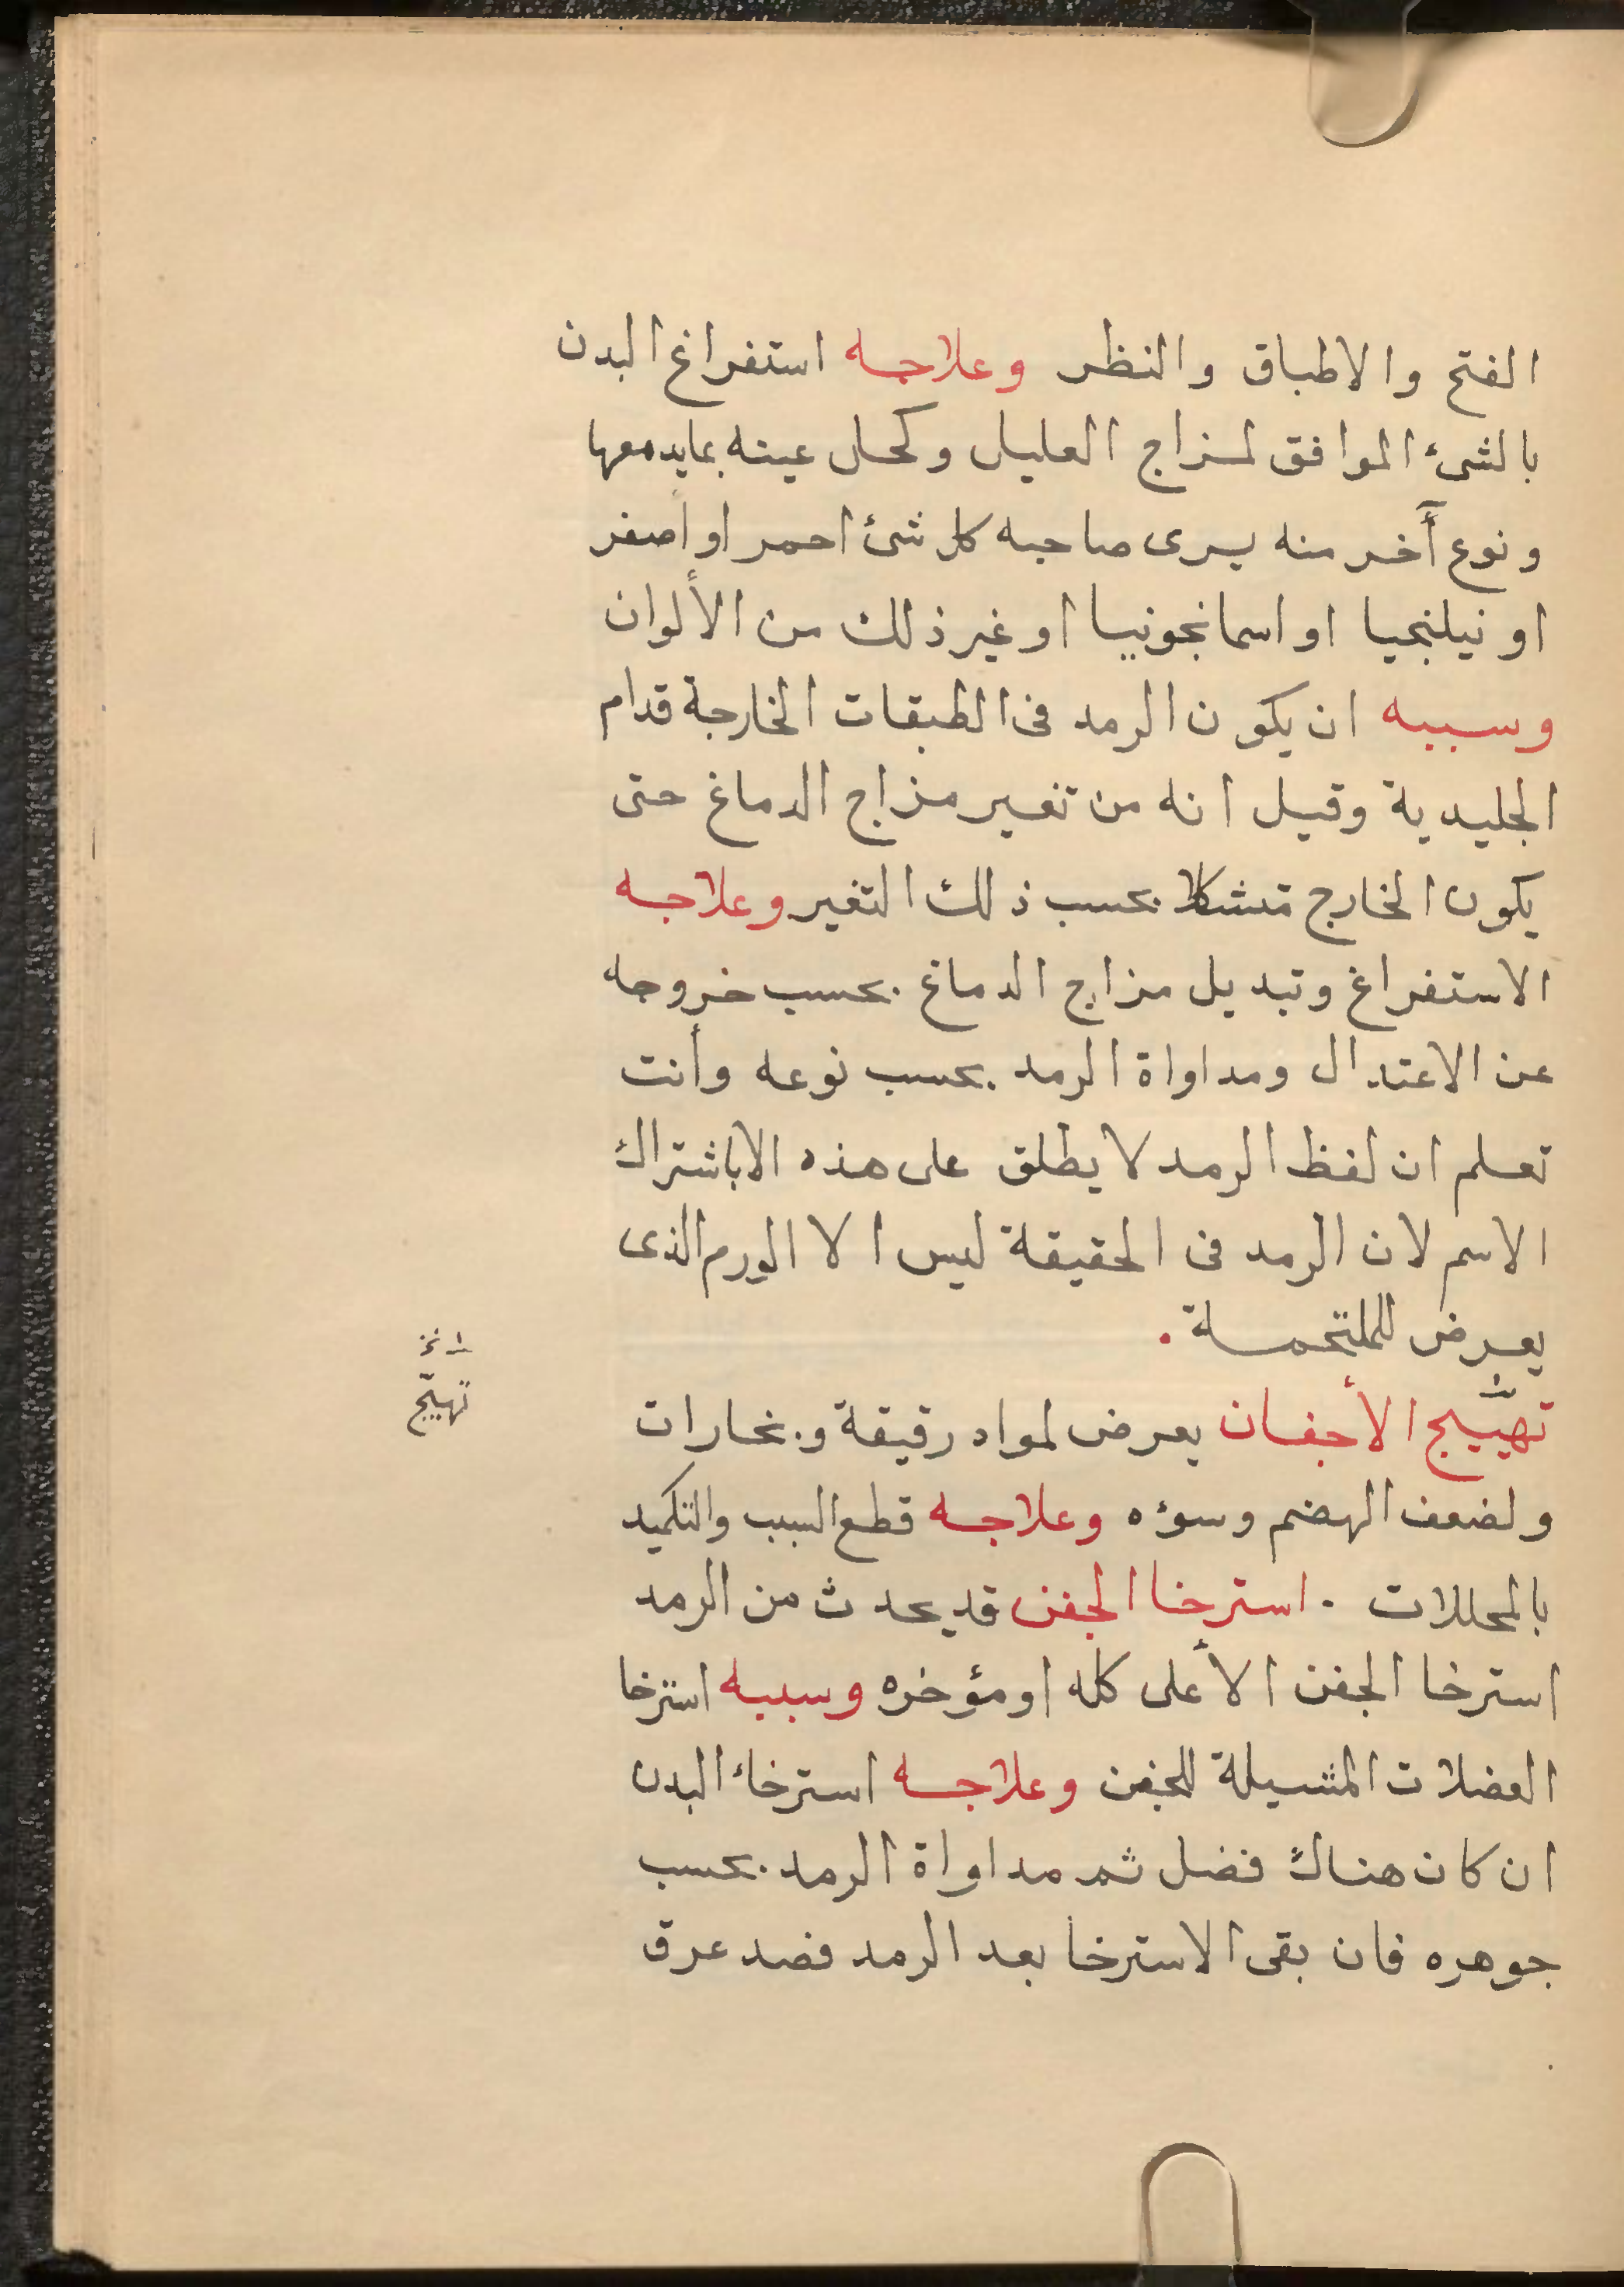 الفتح والاطباق والنظر وعلاجه استفراغ البدن
بالشئ الموافق لمزاج العليل وكحل عينه بمايدمعها
ونوع آخر منه يرى صاحبه كل شئ احمر او أصفر
او نيلنجيا او اسمانجونيا او غير ذلك من الألوان
وسببه ان يكون الرمد فى الطبقات الخارجة قدام
الجليدية وقيل انه من تغير مزاج الدماغ حتى
يكون الخارج متشكلا بحسب ذلك التغير وعلاجه
الاستفراغ وتبديل مزاج الدماغ بحسب خروجه
عن الاعتدال ومداواة الرمد بحسب نوعه وأنت
تعلم ان لفظ الرمد لا يطلق على هذه الا باشتراك
الاسم لان الرمد فى الحقيقة ليس الا الورم الذى
يعرض للملتحمة.
تهييج الأجفان يعرض لمواد رقيقة وبخارات
تهيّج
ولضعف الهضم وسوءه وعلاجه قطع السبب والتكميد
بالمحللات . استرخا الجفن قد يحدث من الرمد
استرخا الجفن الأعلى كله او مؤخره وسببه استرخا
العضلات المشيلة للجفن وعلاجه استرخاء البدن
ان كان هناك فضل ثم مداواة الرمد بحسب
جوهره فان بقى الاسترخا بعد الرمد فصد عرق